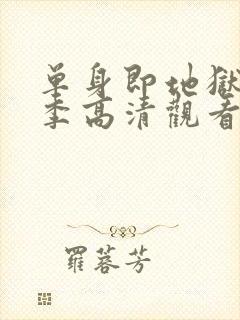 單身即地獄
季高清觀看
羅蓉芳